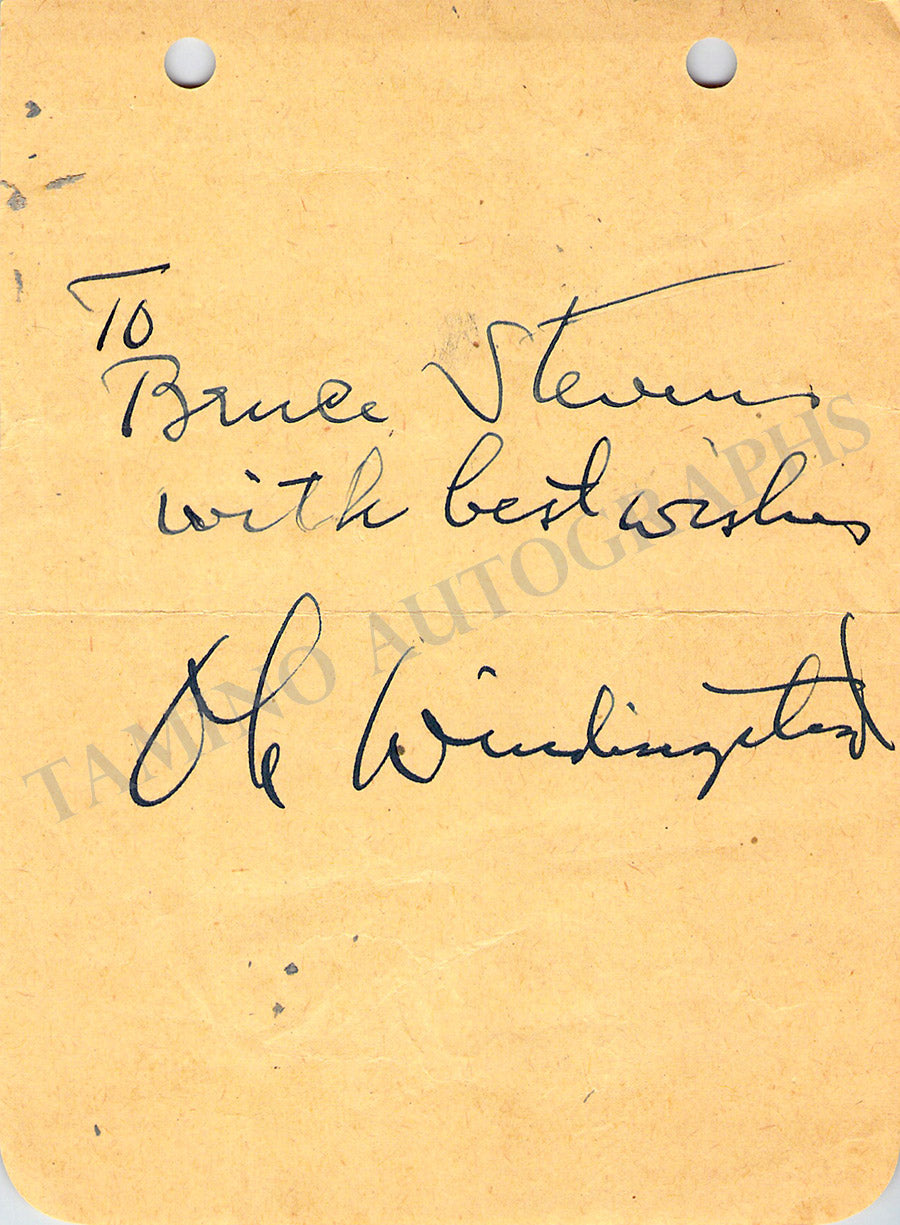 To
Bruce Stevens
with best wishes
Ole Windingstad
TAMINO AUTOGRAPHS